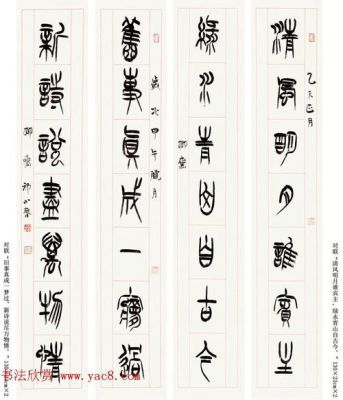 对联“清风明月谁宾主，绿水青山自古今。”130×23cm×2
乙未正月
清風明月誰賓主
綠水青山自古今
歲次甲午臘月
舊事真成一夢過
新詩說盡萬物情
对联“旧事真成一梦过，新诗说尽万物情。”
书法欣赏 www.yac8.com